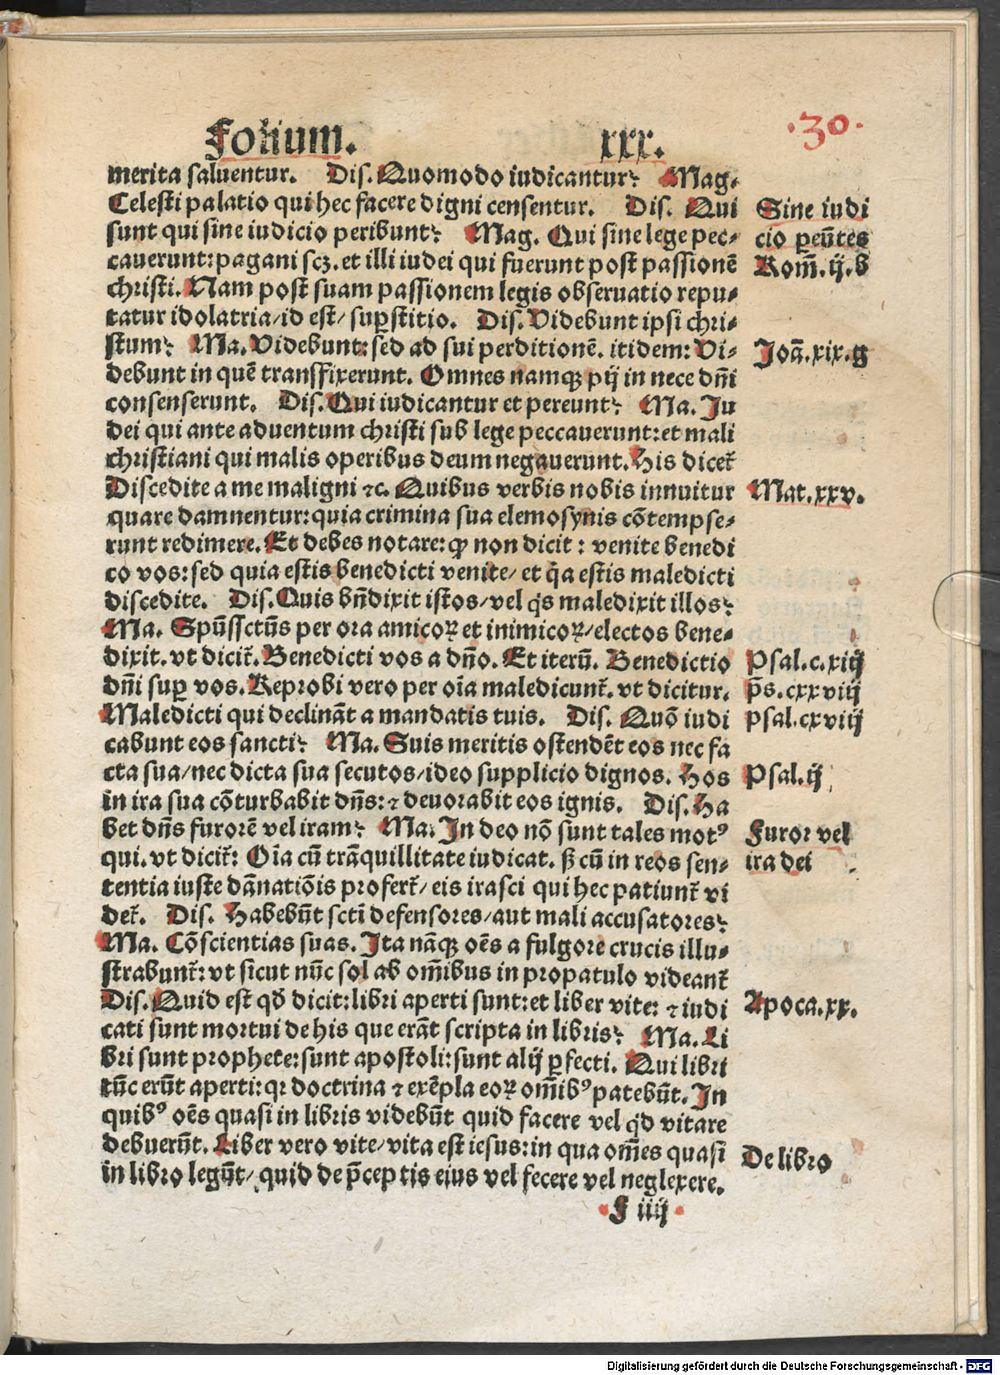 Folium. xxx. .30.
merita saluentur. Dis. Quomodo iudicantur: Mag.
Celesti palatio qui hec facere digni censentur. Dis. Qui
sunt qui sine iudicio peribunt: Mag. Qui sine lege pec-
cauerunt: pagani scꝫ. et illi iudei qui fuerunt post passionē
christi. Nam post suam passionem legis obseruatio repu-
tatur idolatria/id est/ suꝑstitio. Dis. Videbunt ipsi chri-
stum: Ma. Videbunt: sed ad sui perditionē. itidem: Vi-
debunt in quē transfixerunt. Omnes namqꝫ ptij in nece dn̄i
consenserunt. Dis. Qui iudicantur et pereunt: Ma. Iu
dei qui ante aduentum christi sub lege peccauerunt: et mali
christiani qui malis operibus deum negauerunt. His dicet᷑
Discedite a me maligni ⁊c. Quibus verbis nobis innuitur
quare damnentur: quia crimina sua elemosynis cōtempse-
runt redimere. Et debes notare: ꝙ non dicit: venite benedi
co vos: sed quia estis benedicti venite/ et q̄a estis maledicti
discedite. Dis. Quis bn̄dixit istos/vel q̇s maledixit illos:
Ma. Spūssctūs per ora amicoꝝ et inimicoꝝ/electos bene-
dixit. vt dicit᷑. Benedicti vos a dn̄o. Et iterū. Benedictio
dn̄i suꝑ vos. Reprobi vero per oīa maledicunt᷑. vt dicitur.
Maledicti qui declināt a mandatis tuis. Dis. Quō iudi
cabunt eos sancti: Ma. Suis meritis ostendēt eos nec fa
cta sua/nec dicta sua secutos/ideo supplicio dignos. Hos
in ira sua cōturbabit dn̄s: ⁊ deuorabit eos ignis. Dis. Ha
bet dn̄s furorē vel iram: Ma. In deo nō sunt tales motꝰ
qui. vt dicit᷑: Oīa cū trāquillitate iudicat. ẞ cū in reos sen-
tentia iuste dānatiōis profert᷑/ eis irasci qui hec patiunt᷑ vi
det᷑. Dis. Habebūt scti̅ defensores/aut mali accusatores:
Ma. Cōscientias suas. Ita nāqꝫ oēs a fulgore crucis illu-
strabunt᷑: vt sicut nūc sol ab om̄ibus in propatulo videant᷑
Dis. Quid est qd̄ dicit: libri aperti sunt: et liber vite: ⁊ iudi
cati sunt mortui de his que erāt scripta in libris: Ma. Li
bri sunt prophete: sunt apostoli: sunt alij ꝑfecti. Qui libri
tūc erūt aperti: qꝛ doctrina ⁊ exēpla eoꝝ om̄ibꝰ patebūt. In
quibꝰ oēs quasi in libris videbūt quid facere vel qd̄ vitare
debuerūt. Liber vero vite/vita est iesus: in qua om̄es quasi
in libro legūt/ quid de p̄ceptis eius vel fecere vel neglexere.
F iiij
Sine iudi
cio ꝑeūtes
Rom̄. ij. b
Joā. xix. g
Mat. xxv.
Psal. c. xiij
p̄s. cxxviij
psal. cxviij
Psal. ij
Furor vel
ira dei
Apoca. xx.
De libro
Digitalisierung gefördert durch die Deutsche Forschungsgemeinschaft - DFG